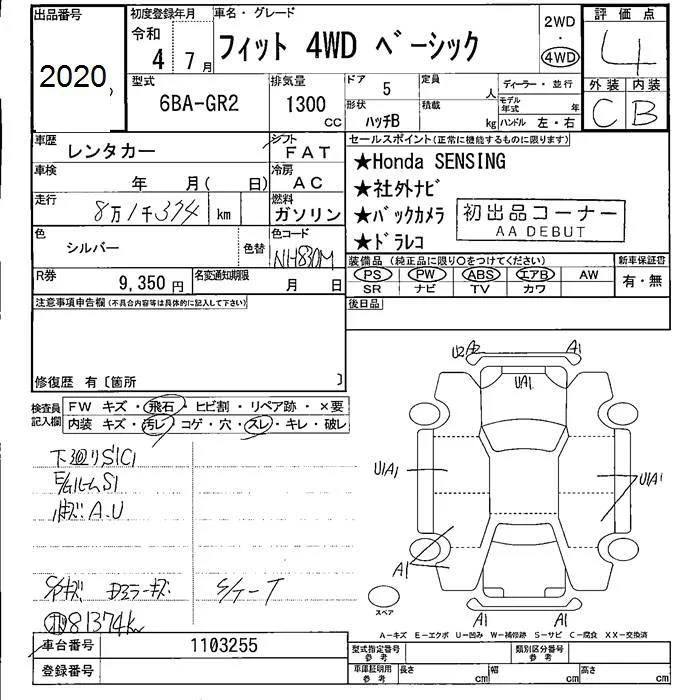 出品番号 初度登録年月 車名・グレード 2WD 評価点
2020, 令和 4年 7月 フィット 4WD ベーシック ・ 4WD 4
型式 排気量 ドア 5 定員 人 ディーラー・並行 外装 内装
6BA-GR2 1300 CC 形状 ハッチB 積載 kg モデル年式 年 ハンドル 左・右 C B
車歴 レンタカー シフト FAT セールスポイント(正常に機能するものに限ります)
車検 年 月( 日) 冷房 AC ★Honda SENSING
走行 8万1千374 km 燃料 ガソリン ★社外ナビ
★バックカメラ 初出品コーナー
AA DEBUT
色 シルバー 色替 色コード NH830M ★ドラレコ
R券 9,350円 名変通知期限 月 日 装備品(純正品に限り○をつけてください) 新車保証書
PS PW ABS エアB AW 有・無
SR ナビ TV カワ
注意事項申告欄(不具合内容等は具体的に記入して下さい) 後日品
修復歴 有〔箇所 〕
検査員記入欄 FW キズ・飛石・ヒビ割・リペア跡・×要
内装 キズ・汚レ・コゲ・穴・スレ・キレ・破レ
U2 A2 A1
UA1
U1A1 U1A1
A1
A1 A1
下廻りS1C1
E/GルームS1
A.U
81374km
スペア
A-キズ E-エクボ U-凹み W-補修跡 S-サビ C-腐食 XX-交換済
車台番号 1103255 型式指定番号 参考 類別区分番号 参考
登録番号 車庫証明用 参考 長さ cm 幅 cm 高さ cm